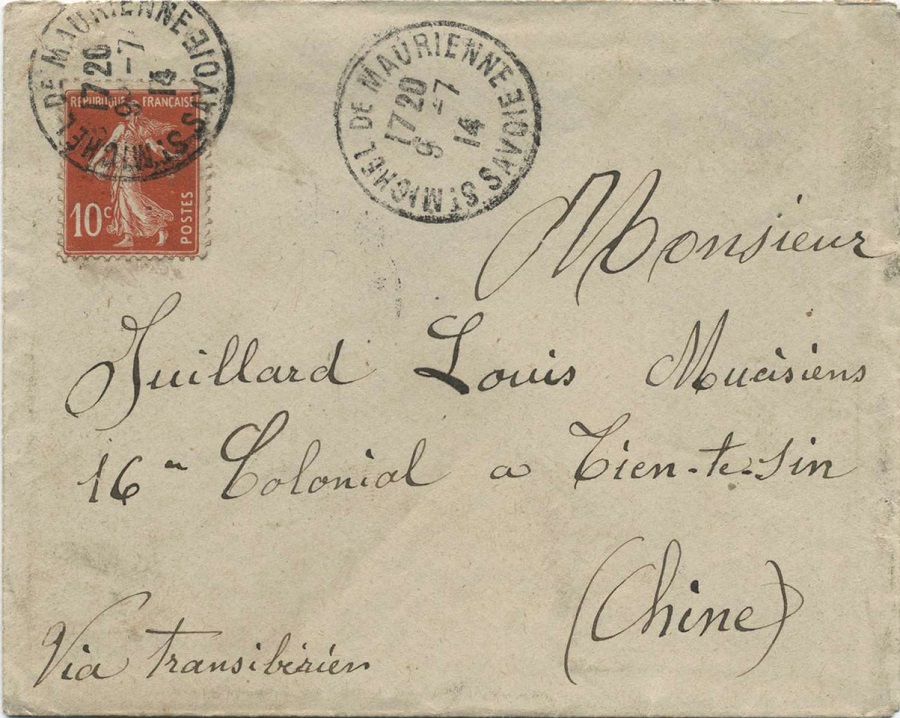 ST MICHEL DE MAURIENNE SAVOIE
17 20
9 -7
14
REPUBLIQUE FRANÇAISE
10c
POSTES
ST MICHEL DE MAURIENNE SAVOIE
17 20
9 -7
14
Monsieur
Juillard Louis Mucisiens
16e Colonial a Tien-te-sin
(Chine)
Via transibérien